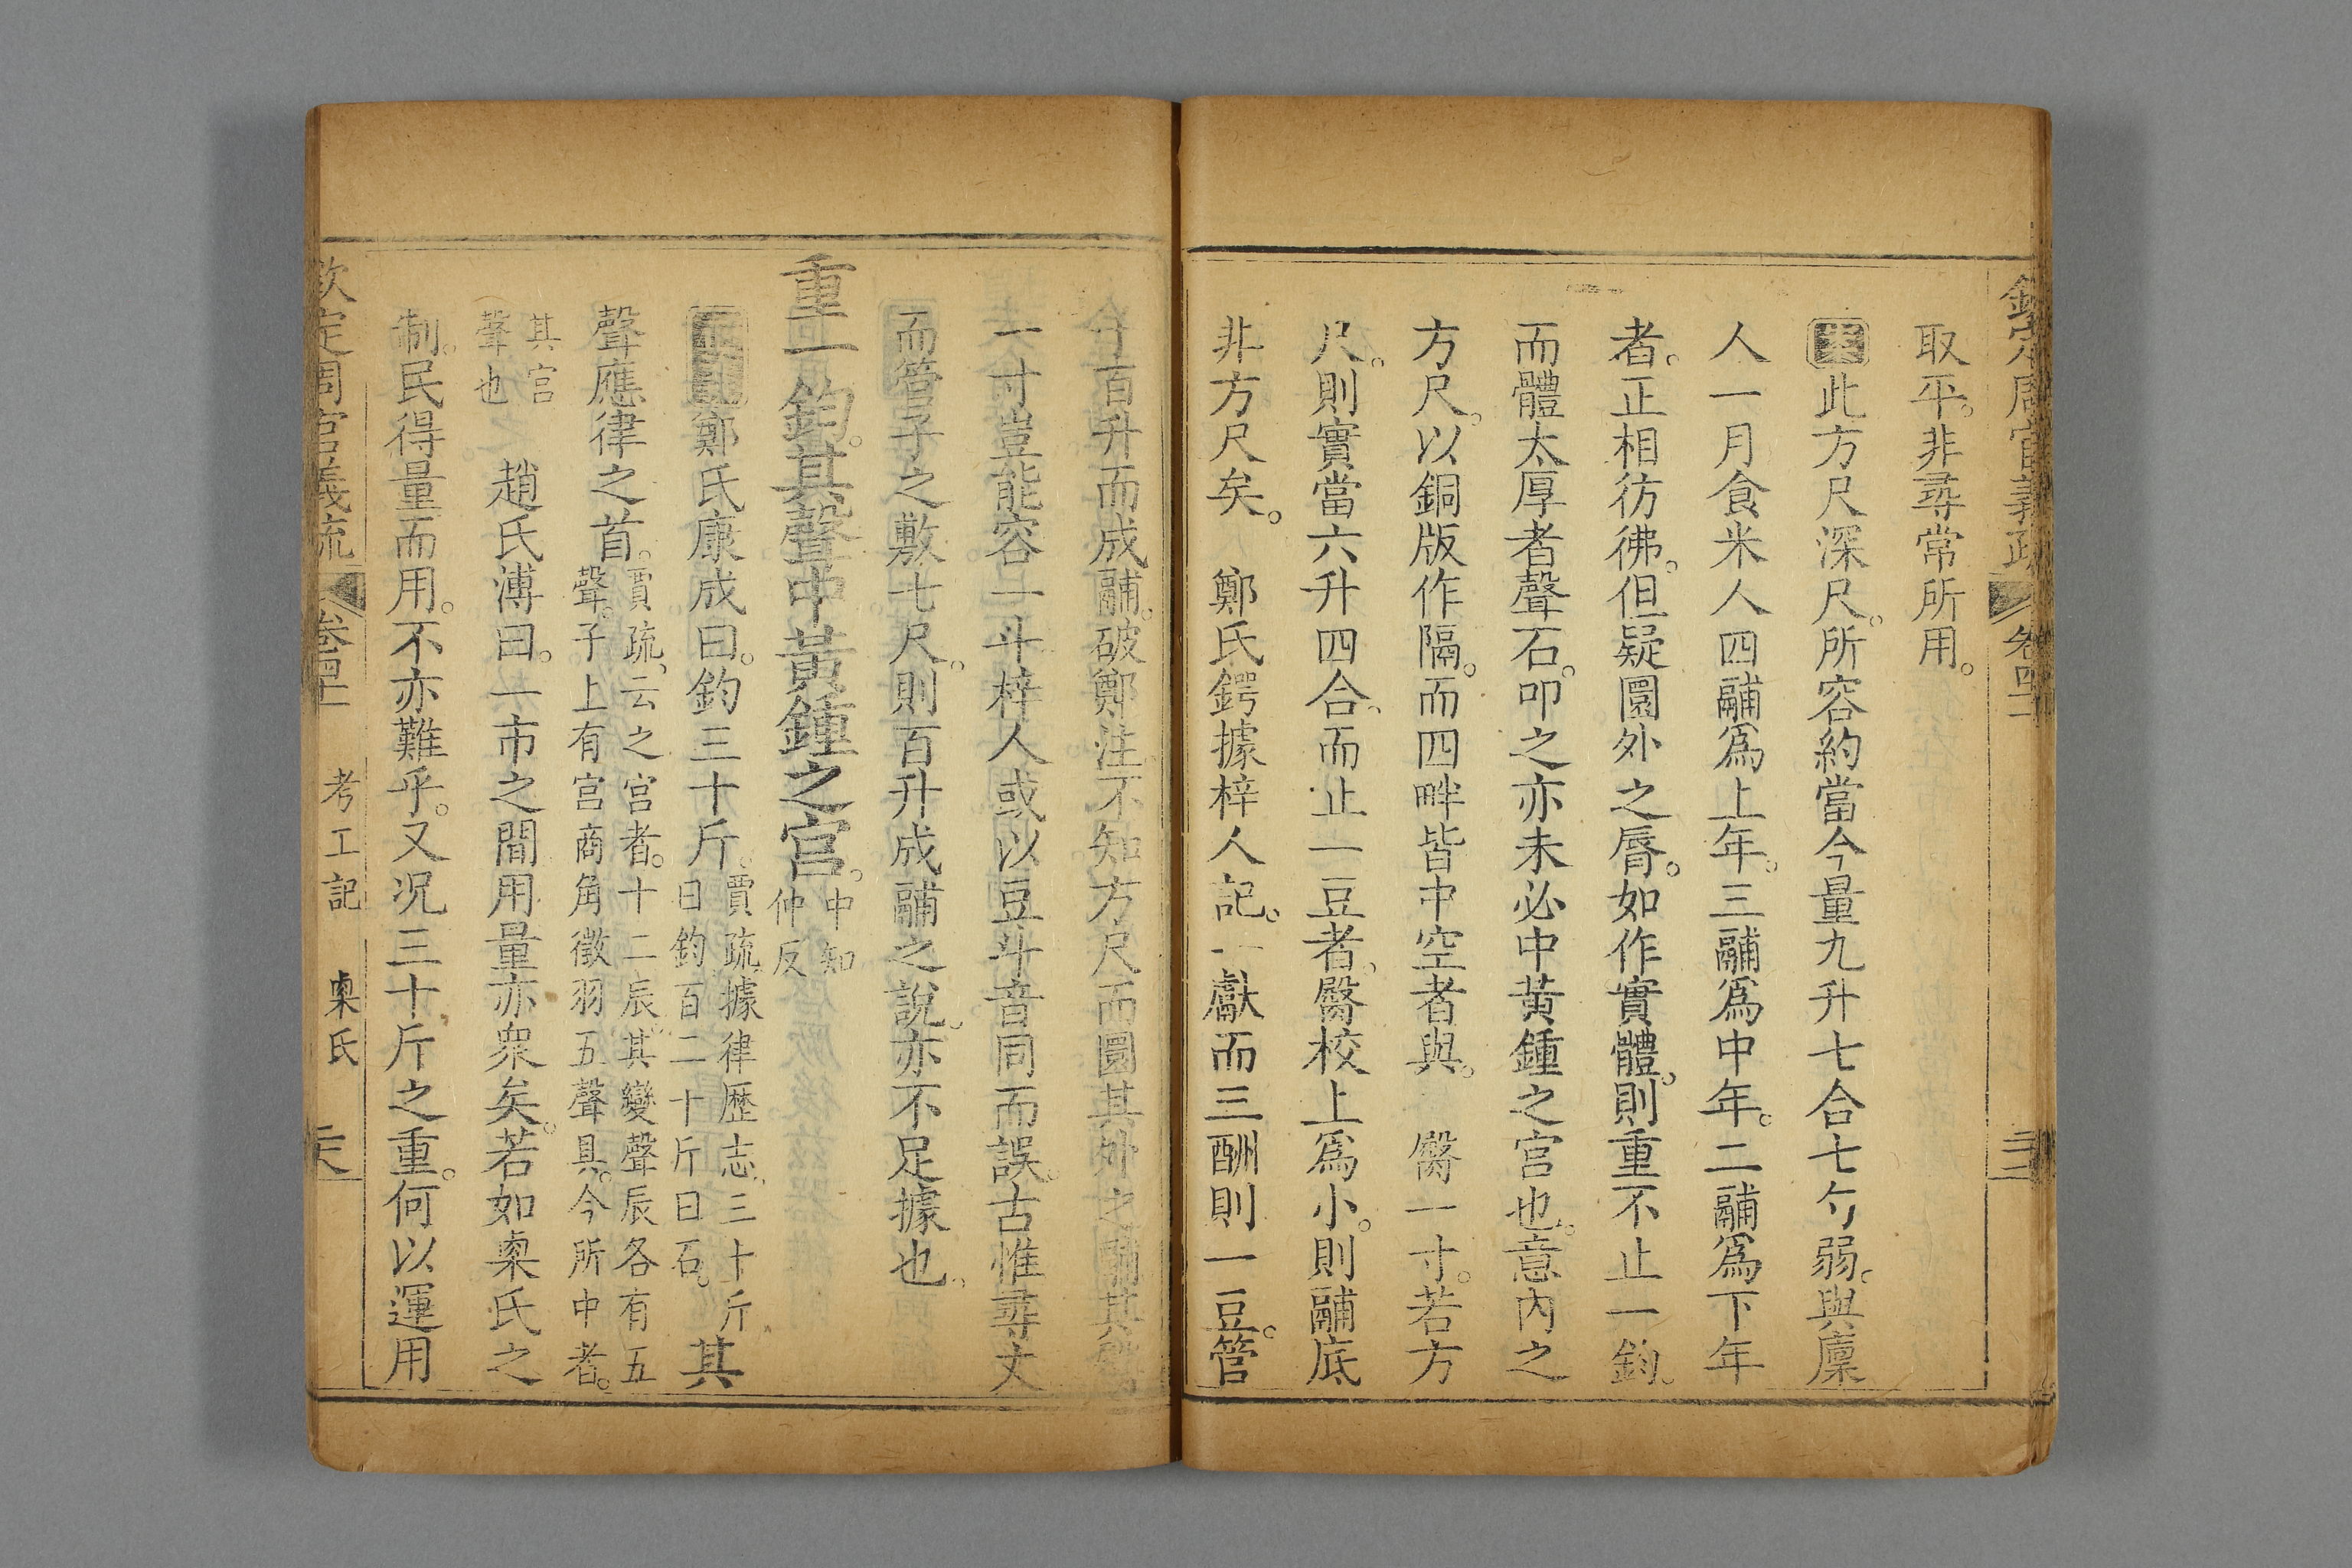 欽定周官義疏 卷四十 三十二
取平。非尋常所用。
案此方尺深尺。所容約當今量九升七合七勺弱。與廩
人一月食米人四鬴爲上年。三鬴爲中年。二鬴爲下年
者。正相彷彿。但疑圜外之脣。如作實體。則重不止一鈞。
而體太厚者聲石。叩之亦未必中黃鍾之宮也。意內之
方尺。以銅版作隔。而四畔皆中空者與。 臋一寸。若方
尺。則實當六升四合。而止一豆者。臋校上爲小。則鬴底
非方尺矣。 鄭氏鍔據梓人記。一獻而三酬則一豆。管
子百升而成鬴。破鄭注。不知方尺而圜其外之鬴其
一寸豈能容一斗梓人或以豆斗音同而誤。古惟尋丈
而管子之敷七尺。則百升成鬴之說。亦不足據也。
重一鈞。其聲中黃鍾之宮。中知仲反
正義鄭氏康成曰。鈞三十斤。賈疏據律歷志。三十斤曰鈞百二十斤曰石。其
聲應律之首。賈疏云之宮者。十二辰。其變聲辰各有五聲。子上有宮商角徵羽五聲具。今所中者。
其宮聲也 趙氏溥曰。一市之間用量亦衆矣。若如㮚氏之
制。民得量而用。不亦難乎。又况三十斤之重。何以運用
欽定周官義疏 卷四十 考工記 㮚氏